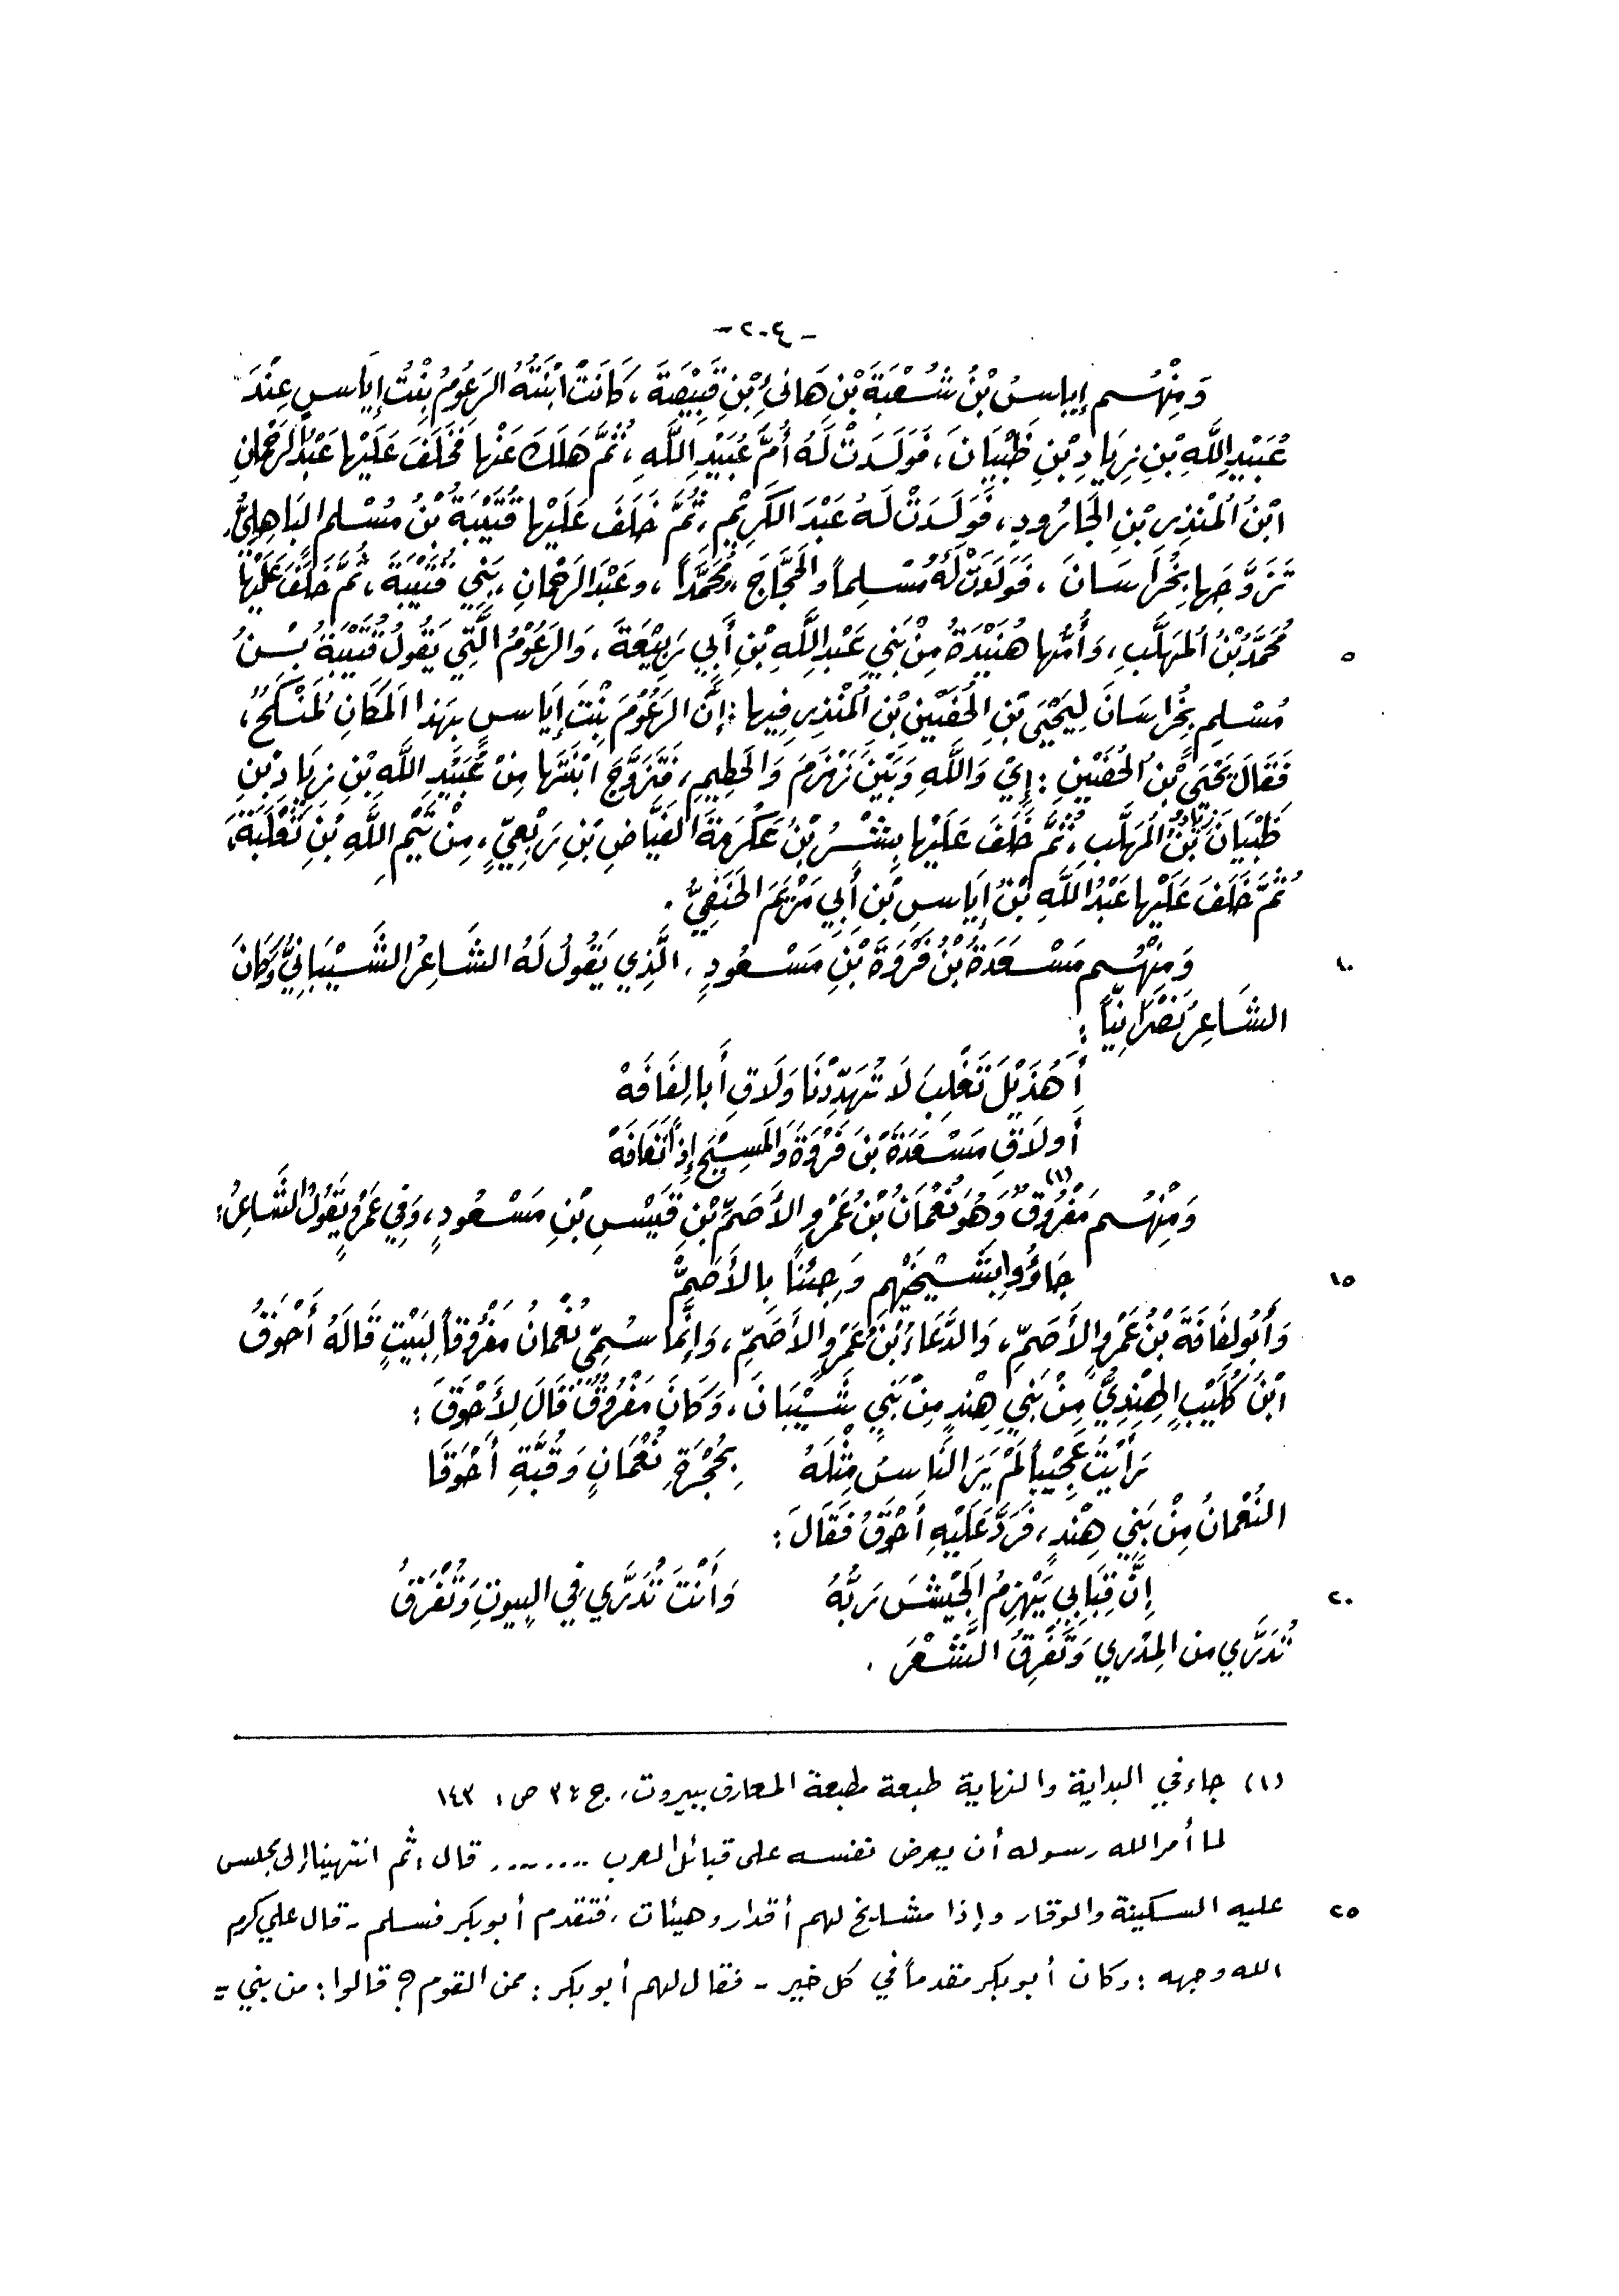 - ٤٠٢ -
وَمِنْهُم إياسُ بْنُ شُعْبَةَ بْنِ هَانئِ بْنِ قَبِيْصَةَ، كَانَتْ ابْنَتُهُ الرَعُوْمُ بِنْتُ إِيَاسٍ عِنْدَ
عُبَيْدِ اللَّهِ بْنِ زِيَادِ بْنِ ظَبْيَانَ، فَوَلَدَتْ لَهُ أُمَّ عُبَيْدِ اللَّهِ، ثُمَّ هَلَكَ عَنْها فَخَلَفَ عَلَيْها عَبْدُ الرَحْمانِ
ابْنُ المُنْذِرِ بْنِ الجَارُودِ، فَوَلَدَتْ لَهُ عَبْدَ الكَرِيْمِ، ثُمَّ خَلَفَ عَلَيْها قُتَيْبَةُ بْنُ مُسْلمِ البَاهِلِيُّ،
تَزَوَّجَها بِخُرَاسَانَ، فَوَلَدَتْ لَهُ مُسْلِماً والحَجَّاجَ، ومُحَمَّداً، وعَبْدَ الرَحْمانِ، بَنِي قُتَيْبَةَ، ثُمَّ خَلَفَ عَلَيْها
٥ مُحَمَّدُ بْنُ المُهَلَّبِ، وَأُمُّها هُنَيْدَةُ مِنْ بَنِي عَبْدِ اللَّهِ بْنِ أَبِي رَبِيْعَةَ، وَالرَعُوْمُ الَّتِي يَقُولُ قُتَيْبَةُ بْنُ
مُسْلِمٍ بِخُرَاسَانَ لِيَحْيَى بْنِ الحُضَيْنِ بْنِ المُنْذِرِ فِيها: إِنَّ الرَعُوْمَ بِنْتَ إِيَاسٍ بِهَذا المَكَانِ لَمَنْكَحٌ،
فَقَالَ يَحْيَى بْنُ الحُضَيْنِ: إِيْ وَاللَّهِ وَبَيْنَ زَمْزَمَ وَالحَطِيمِ، فَتَزَوَّجَ ابْنَتَها مِنْ عُبَيْدِ اللَّهِ بْنِ زِيَادِ بْنِ
ظَبْيَانَ زِيَادُ بْنُ المُهَلَّبِ، ثُمَّ خَلَفَ عَلَيْها بِشْرُ بْنُ عِكْرِمَةَ الفَيَّاضِ بْنِ رِبْعِيٍّ، مِنْ تَيْمِ اللَّهِ بْنِ ثَعْلَبَةَ،
ثُمَّ خَلَفَ عَلَيْها عَبْدُ اللَّهِ بْنُ إِيَاسِ بْنِ أَبِي مَرْيَمَ الحَنَفِيُّ.
١٠ وَمِنْهُم مَسْعَدَةُ بْنُ فَرْوَةَ بْنِ مَسْعُودٍ، الَّذِي يَقُولُ لَهُ الشَاعِرُ الشَيْبَانِيُّ وَكَانَ
الشَاعِرُ نَصْرَانِيّاً:
أَهُذَيْلَ تَغْلِبَ لَا تُهَدِّدْنَا وَلَاقِ أَبا لِفَافَهْ
أَو لَاقِ مَسْعَدَةَ بْنَ فَرْوَةَ وَالمَسِيْحِ إِذاً تَعَافَهْ
وَمِنْهُم مَفْرُوْقٌ (١) وَهُوَ نُعْمَانُ بْنُ عَمْرٍو الأَصَمِّ بْنِ قَيْسِ بْنِ مَسْعُودٍ، وَفِي عَمْرٍو يَقُولُ الشَاعِرُ:
١٥ جَاؤُوا بِشَيْخَيْهِم وَجِئْنَا بِالأَصَمّْ
وَأَبُو لِفَافَةَ بْنُ عَمْرٍو الأَصَمِّ، وَالدَّعَاءُ بْنُ عَمْرٍو الأَصَمِّ، وَإِنَّما سُمِّيَ نُعْمانُ مَفْرُوْقاً لِبَيْتٍ قَالَهُ أَحْوَقُ
ابْنُ كُلَيْبٍ الهِنْدِيُّ مِنْ بَنِي هِنْدٍ مِنْ بَنِي شَيْبَانَ، وَكَانَ مَفْرُوْقٌ قَالَ لِأَحْوَقَ:
رَأَيْتُ عَجِيْباً لَمْ يَرَ النَاسُ مِثْلَهُ بِحُجْرَةِ نُعْمَانٍ وَقُبَّةِ أَحْوَقَا
النُعْمَانُ مِنْ بَنِي هِنْدٍ، فَرَدَّ عَلَيْهِ أَحْوَقُ فَقَالَ:
٢٠ إِنَّ قِبَابِي يَهْزِمُ الجَيْشَ رَبُّهُ وَأَنْتَ تُدَرَّي فِي البِيوتِ وَتُفْرَقُ
تُدَرَّي من المِدْرِي وَتَفْرِقُ الشَعْرَ.
(١) جاء في البداية والنهاية طبعة مطبعة المعارف ببيروت، ج: ٣ ص: ١٤٣
لما أمر الله رسوله أن يعرض نفسه على قبائل العرب ........ قال: ثم انتهينا إلى مجلس
٢٥ عليه السكينة والوقار وإذا مشايخ لهم أقدار وهيئات، فتقدم أبو بكر فسلم - قال علي كرم
الله وجهه: وكان أبو بكر مقدماً في كل خير - فقال لهم أبو بكر: ممن القوم؟ قالوا: من بني =